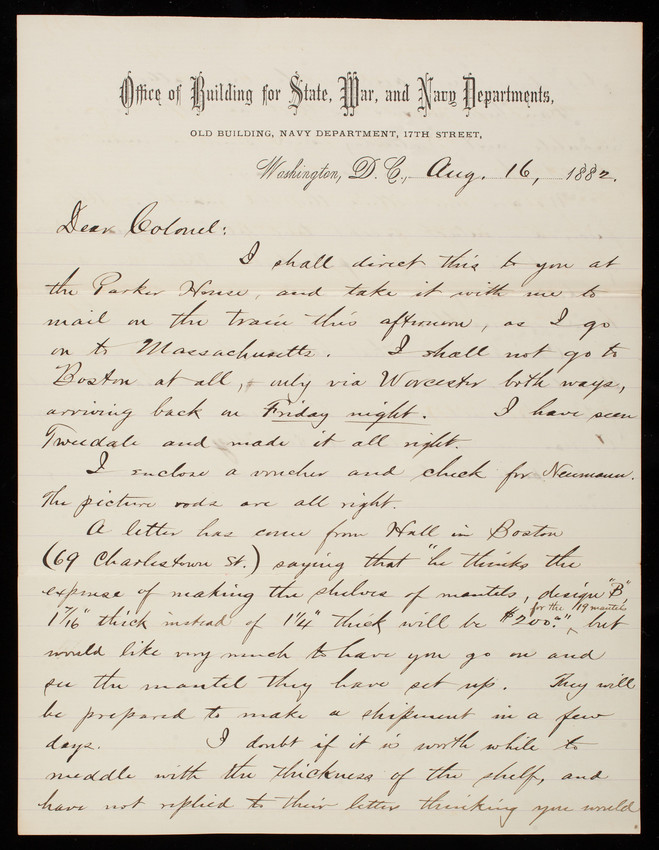 Office of Building for State, War, and Navy Departments,
OLD BUILDING, NAVY DEPARTMENT, 17TH STREET,
Washington, D.C., Aug. 16, 1882.
Dear Colonel:
I shall direct this to you at
the Parker House, and take it with me to
mail on the train this afternoon, as I go
on to Massachusetts. I shall not go to
Boston at all, + only via Worcester both ways,
arriving back on Friday night. I have seen
Tweedale and made it all right.
I enclose a voucher and check for Neumann.
The picture rods are all right.
A letter has come from Hall in Boston
(69 Charlestown St.) saying that "he thinks the
expense of making the shelves of mantels, design "B",
for the 19 mantels
1 7/16" thick instead of 1 1/4" thick will be $200.", but
would like very much to have you go on and
see the mantel they have set up. They will
be prepared to make a shipment in a few
days. I doubt if it is worth while to
meddle with the thickness of the shelf, and
have not replied to their letter thinking you would